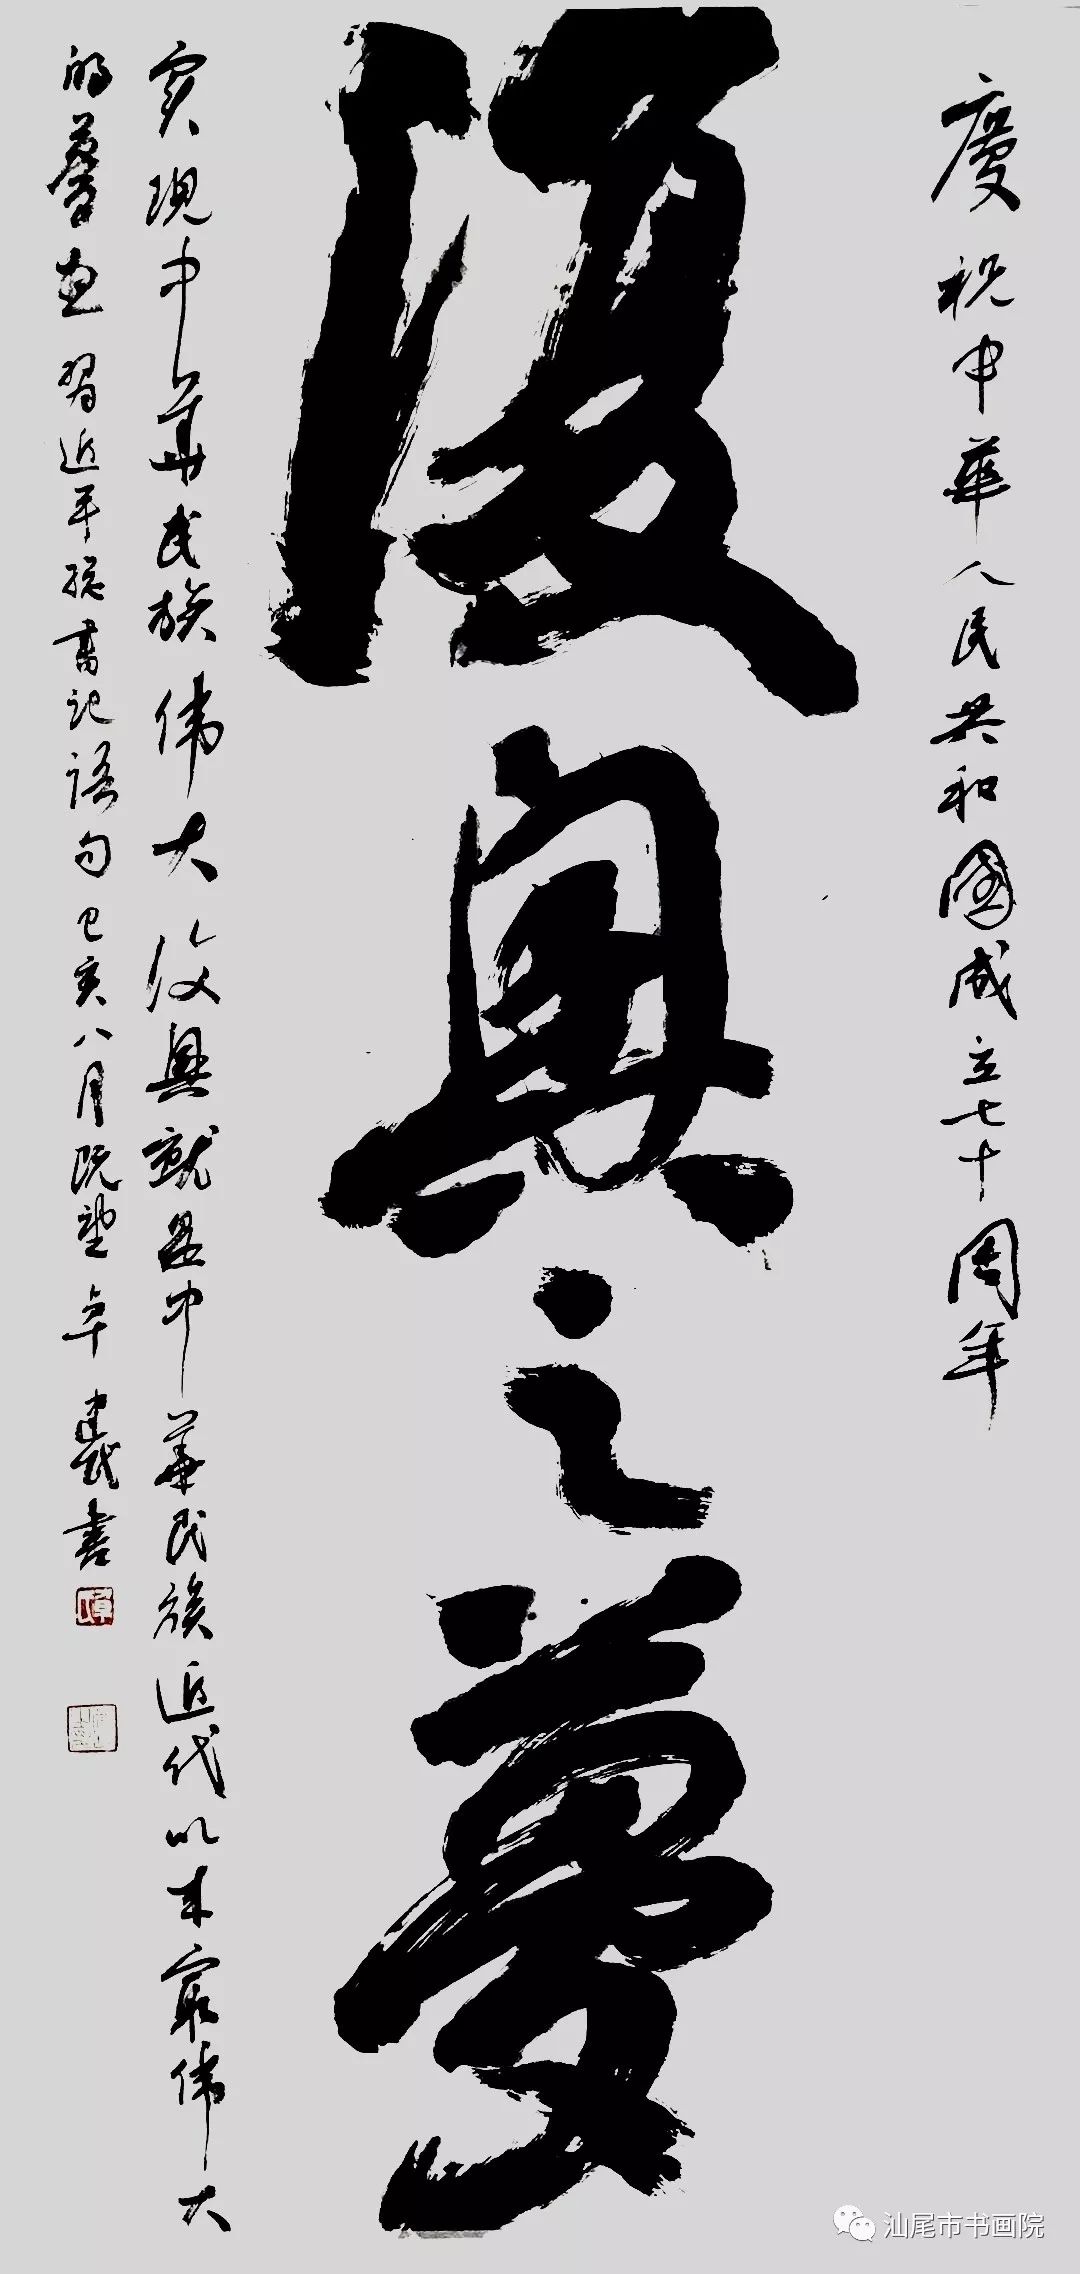 慶祝中華人民共和國成立七十周年
復興之夢
实现中華民族伟大復興就是中華民族近代以来最伟大
的夢想 習近平總書記語句 己亥八月既望 卓建武書
汕尾市书画院